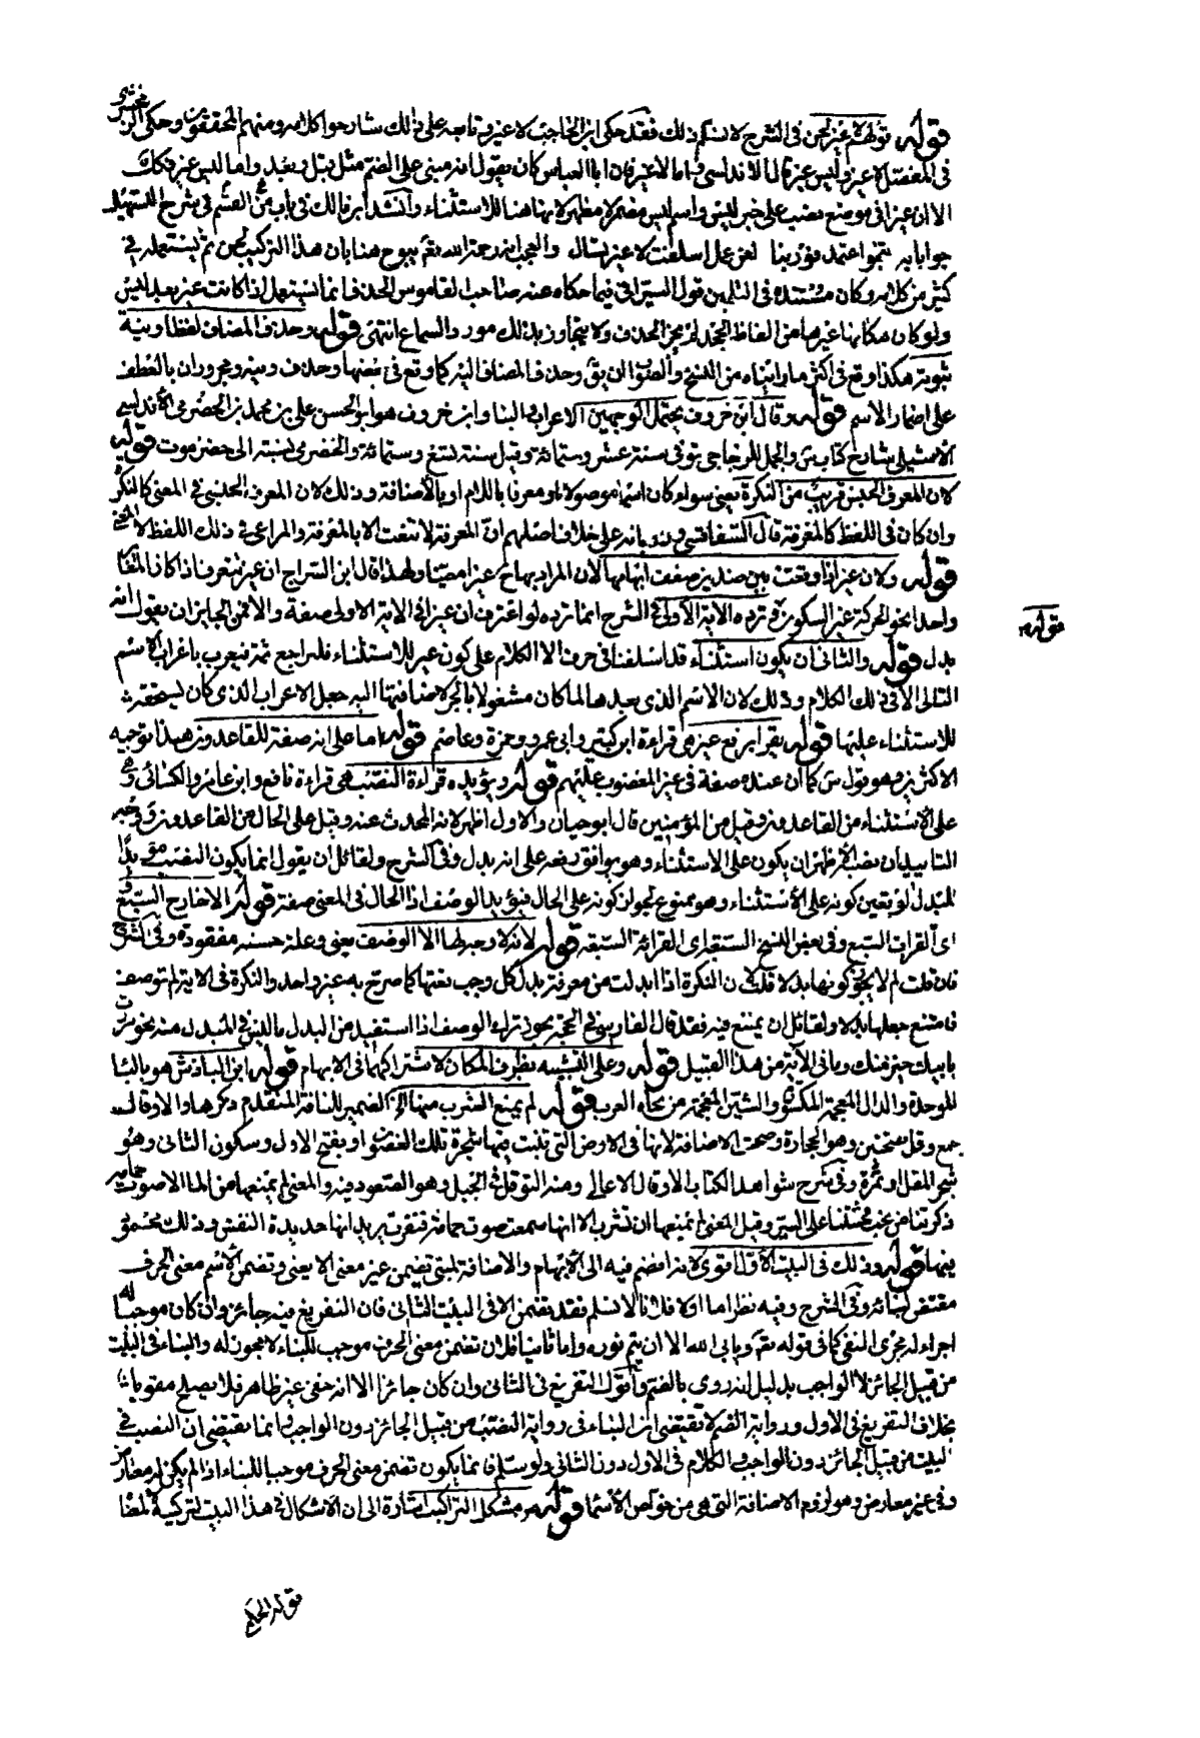 قوله وقولهم لا غير لحن فى الشرح لا نسلم ذلك فقد حكى ابن الحاجب لا غير وتابعه على ذلك شارحوا كلامه ومنهم المحققون وحكى الزمخشرى
فى المفصل لا غير وليس غير قال الاندلسى فاما لا غير فان ابا العباس كان يقول انه مبنى على الضم مثل قبل وبعد واما ليس غير فكذلك
الا ان غيرا فى موضع نصب على خبر ليس واسم ليس مضمر لا مظهر لانها هنا للاستثناء وانشد ابن مالك فى باب القسم فى شرح التسهيل
جوابا به تنجو اعتمد فوربنا لعن عمل اسلفت لا غير تسال والعجب انه رحمة الله تع يبوح هنا بان هذا التركيب لحن ثم يستعمله فى
كثير من كلامه وكان مستنده فى التلحين قول السيرافى فيما حكاه عنه صاحب القاموس الحذف انما يستعمل اذا كانت غير بعد ليس
ولو كان مكانها غيرها من الفاظ الجحد لم يجز الحذف ولا يتجاوز بذلك مورد السماع انتهى قوله وحذف المضاف لفظا ونية
ثبوته هكذا وقع فى اكثر ما رايناه من النسخ والصواب ان يق وحذف المضاف اليه كما وقع فى بعضها وحذف ونية مجروران بالعطف
على اضمار الاسم قوله وقال ابن خروف يحتمل الوجهين الاعراب والبنا وابن خروف هو ابو الحسن على بن محمد بن الحضرمى الأندلسى
الاشبيلى شارح كتاب س والجمل للزجاجى توفى سنة عشر وستمائة وقيل سنة تسع وستمائة والحضرمى نسبة الى حضرموت قوله
لان المعرف الجنس قريب من النكرة يعنى سواء كان اسما موصولا او معرفا باللام او بالأضافة وذلك لان المعرف الجنسى فى المعنى كالنكرة
وان كان فى اللفظ كالمعرفة قال السفاقسى ورد بانه على خلاف اصلهم انّ المعرفة لا تنعت الا بالمعرفة والمراعى فى ذلك اللفظ لا المعنى
قوله ولان غيرا اذا وقعت بين ضدين ضعف ابهامها لان المراد بها ح غير امعينا ولهذا قال ابن السراج ان غير تتعرف اذا كان المغاير
واحدا نحو الحركة غير السكون قوله وترده الآية الأولى فى الشرح انما ترده لو اعترف ان غير فى الآية الاولى صفة والا فمن الجايز ان يقول انه
بدل قوله والثانى ان يكون استثناء قد اسلفنا فى حرف الا الكلام على كون غير للاستثناء فليراجع ثمة فيعرب باعراب الاسم
التالى الا فى ذلك الكلام وذلك لان الاسم الذى بعدها لما كان مشغولا بالجر لاضافتها اليه جعل الاعراب الذى كان يستحقه
للاستثناء عليها قوله يقرا برفع غير هى قراءة ابن كثير وابى عمرو وحمزة وعاصم قوله اما على انه صفة للقاعدون هذا توجيه
الاكثرين وهو قول س كما ان عنده صفة فى غير المغضوب عليهم قوله ويؤيده قراءة النصب هى قراءة نافع وابن عامر والكسائى وهى
على الأستثناء من القاعدون وقيل من المؤمنين قال ابو حيان والاول اظهر لانه المحدث عنه وقيل على الحال من القاعدون وفى وجه
التاييد ان نصبه الاظهر ان يكون على الاستثناء وهو يوافق رفعه على انه بدل وفى الشرح ولقائل ان يقول انما يكون النصب مؤيدا
للبدل لو تعين كونه على الأستثناء وهو ممنوع لجواز كونه على الحال فيؤيد الوصف اذ الحال فى المعنى صفة قوله الا خارج السبع
اى القرات السبع وفى بعض النسخ السبعة اى القرائة السبعة قوله لانه لا وجه لها الا الوصف يعنى وعلة حسنه مفقودة وفى الشرح
فان قلت لم لا يجوز كونها بدلا قلت لان النكرة اذا ابدلت من معرفة بدل كل وجب نعتها كما صرح به غير واحد والنكرة فى الاية لم توصف
فامتنع جعلها بدلا ولقائل ان يمنع فيه فقد قال الفارسى فى الحجة يجوز ترك الوصف اذا استفيد من البدل ما ليس فى المبدل منه نحو مررت
بابيك خير منك وما فى الآية من هذا القبيل قوله وعلى التشبيه بظرف المكان لاشتراكهما فى الابهام قوله ابن الباذش هو بالبا
الموحدة والذال المعجمة المكسورة والشين المعجمة من نحاة العرب قوله لم يمنع الشرب منها الخ الضمير للناقة المتقدم ذكرها والاوقال
جمع وقل بفتحتين وهو الحجارة وصحت الاضافة لانها فى الارض التى تنبت فيها شجرة تلك الغصون او بفتح الاول وسكون الثانى وهو
شجر المقل او ثمره وفى شرح شواهد الكتاب الاوقال الاعالى ومنه التوقل فى الجبل وهو الصعود فيه والمعنى لم يمنعها من الماء الا صوت حمامة
ذكرتنا من يحب فحثثنا على السير وقيل المعنى لم يمنعها ان تشرب الا انها سمعت صوت حمامة فنفرت يريد انها حديدة النفس وذلك محمود
فيها قوله وذلك فى البيت الأول اقوى لانه انضم فيه الى الأبهام والاضافة لمبنى تضمن غير معنى الا يعنى وتضمن الأسم معنى الحرف
مقتض لبنائه وفى الشرح وفيه نظر اما اولا فلانا لا نسلم فقد تضمن الا فى البيت الثانى فان التفريغ فيه جائز وان كان موجبا
اجراء له مجرى النفى كما فى قوله تع ويابى الله الا ان يتم نوره واما ثانيا فلان تضمن معنى الحرف موجب للبناء لا مجوز له والبناء فى البيت
من قبيل الجائز لا الواجب بدليل انه روى بالضم واقول التفريغ فى الثانى وان كان جائزا الا انه خفى غير ظاهر فلا يصلح مقويا
بخلاف التفريغ فى الاول ورواية الضم لا تقتضى ان البناء فى رواية النصب من قبيل الجائز دون الواجب وانما يقتضى ان النصب فى
البيت من قبيل الجائز دون الواجب والكلام فى الاول دون الثانى ولو سلم فانما يكون تضمن معنى الحرف موجبا للبناء اذا لم يكن له معارض
وفى غير معارض وهو لزوم الاضافة التى هى من خواص الأسما قوله من مشكل التراكيب اشارة الى ان الاشكال فى هذا البيت لتركيبه
قوله
قوله الحكمى